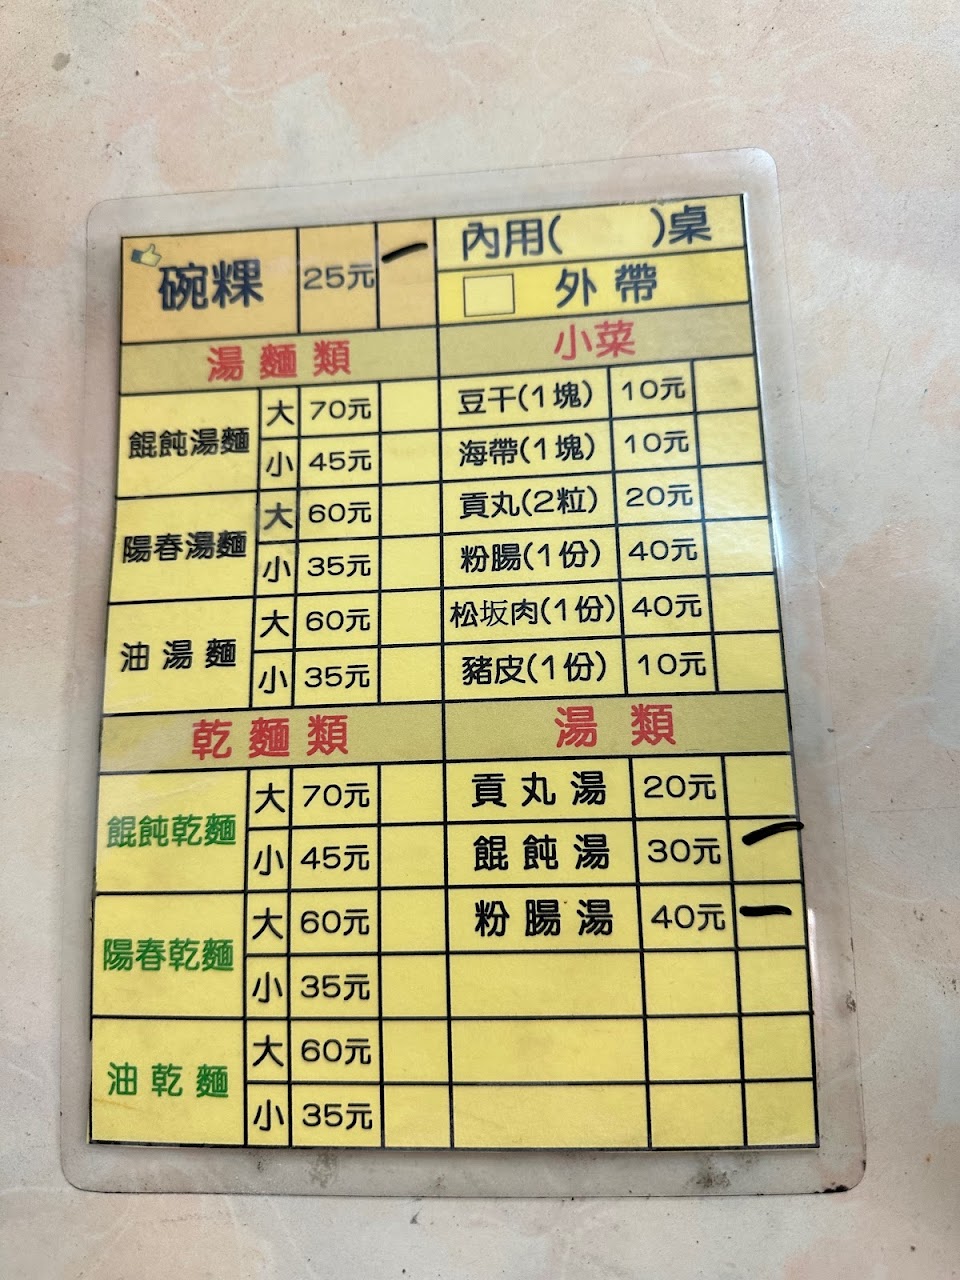 碗粿 25元 一
內用( )桌
外帶
湯麵類
餛飩湯麵 大 70元
小 45元
陽春湯麵 大 60元
小 35元
油湯麵 大 60元
小 35元
乾麵類
餛飩乾麵 大 70元
小 45元
陽春乾麵 大 60元
小 35元
油乾麵 大 60元
小 35元
小菜
豆干(1塊) 10元
海帶(1塊) 10元
貢丸(2粒) 20元
粉腸(1份) 40元
松坂肉(1份) 40元
豬皮(1份) 10元
湯類
貢丸湯 20元
餛飩湯 30元 一
粉腸湯 40元 一